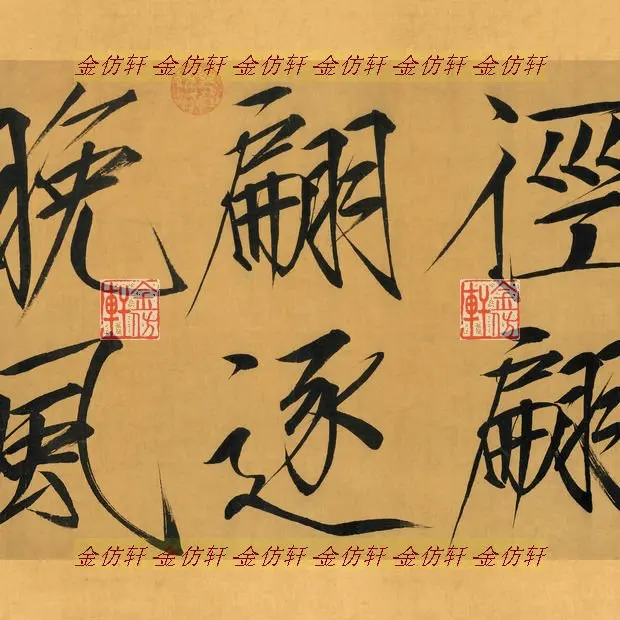 金仿轩 金仿轩 金仿轩 金仿轩 金仿轩 金仿轩
徑翩
翩逐
晚風
金仿軒
金仿軒
金仿轩 金仿轩 金仿轩 金仿轩 金仿轩 金仿轩